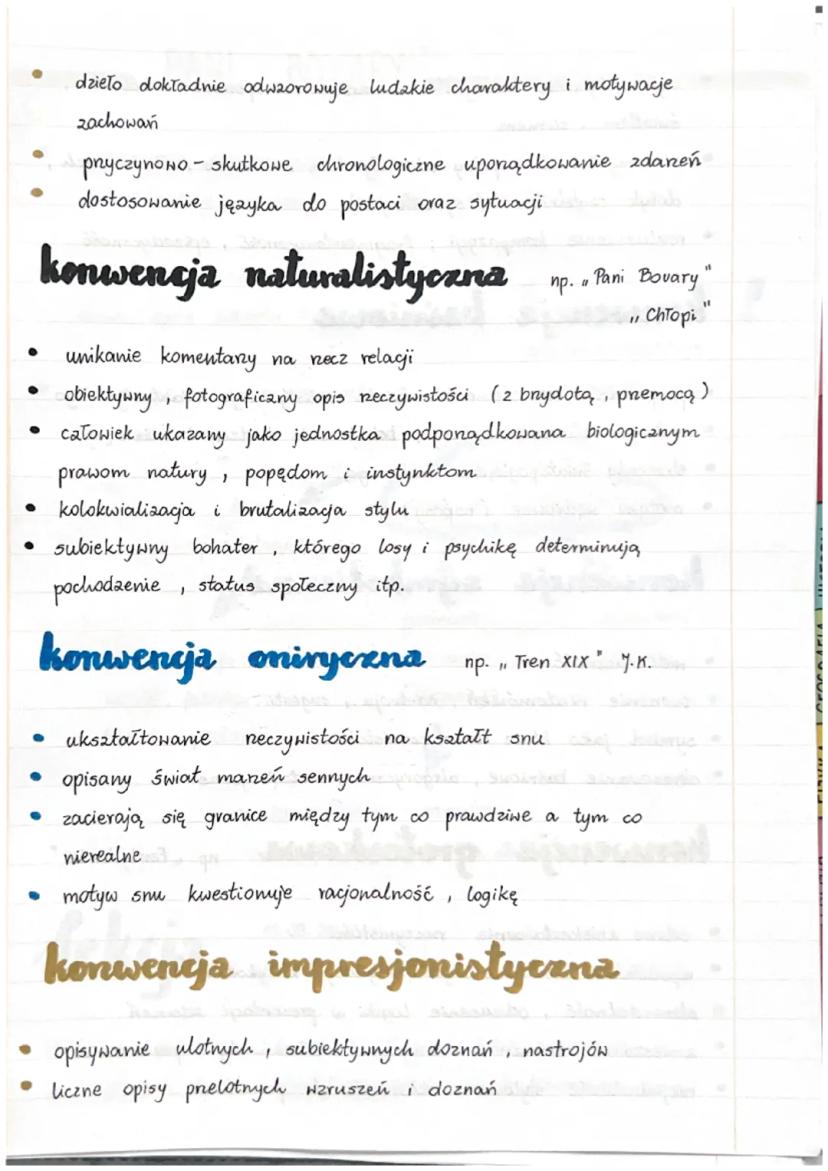 • dzieło dokładnie odwzorowuje ludzkie charaktery i motywacje
zachowań
• przyczynowo - skutkowe chronologiczne uporządkowanie zdarzeń
• dostosowanie języka do postaci oraz sytuacji
konwencja naturalistyczna np. „Pani Bovary"
„Chłopi"
• unikanie komentarzy na rzecz relacji
• obiektywny, fotograficzny opis rzeczywistości (z brzydotą, przemocą)
• człowiek ukazany jako jednostka podporządkowana biologicznym
prawom natury, popędom i instynktom
• kolokwializacja i brutalizacja stylu
• subiektywny bohater, którego losy i psychikę determinują
pochodzenie, status społeczny itp.
konwencja oniryczna np. „Tren XIX" J.K.
• ukształtowanie rzeczywistości na kształt snu
• opisany świat marzeń sennych
• zacierają się granice między tym co prawdziwe a tym co
nierealne
• motyw snu kwestionuje racjonalność, logikę
konwencja impresjonistyczna
• opisywanie ulotnych, subiektywnych doznań, nastrojów
• liczne opisy przelotnych wzruszeń i doznań